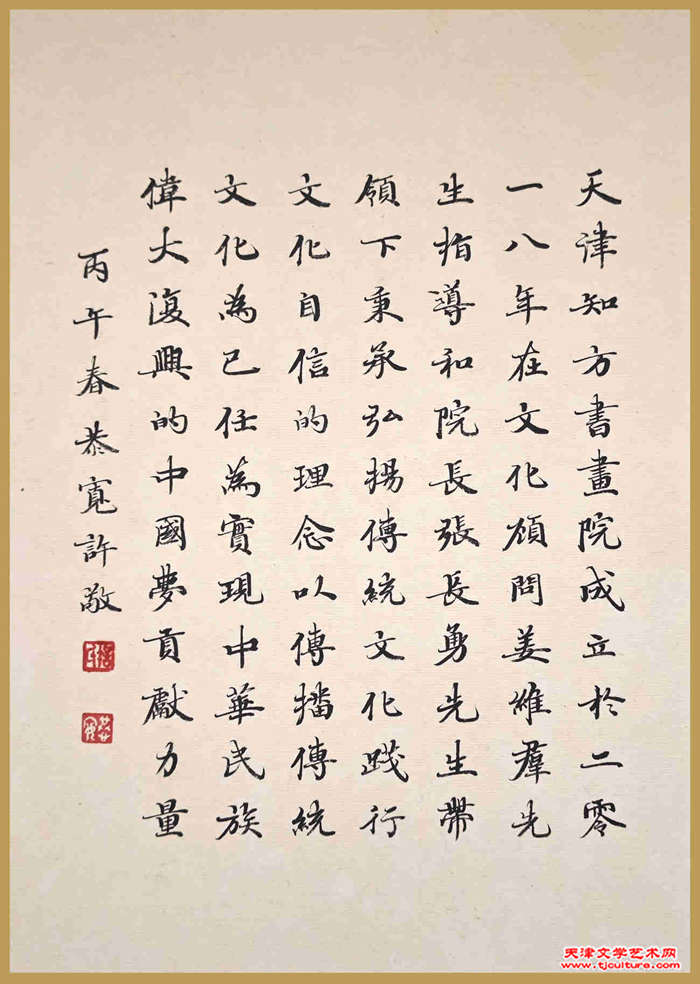 天津知方書畫院成立於二零
一八年在文化顧問姜維羣先
生指導和院長張長勇先生帶
領下秉承弘揚傳統文化踐行
文化自信的理念以傳播傳統
文化為已任為實現中華民族
偉大復興的中國夢貢獻力量
丙午春恭寬許敬
天津文学艺术网
www.tjculture.com